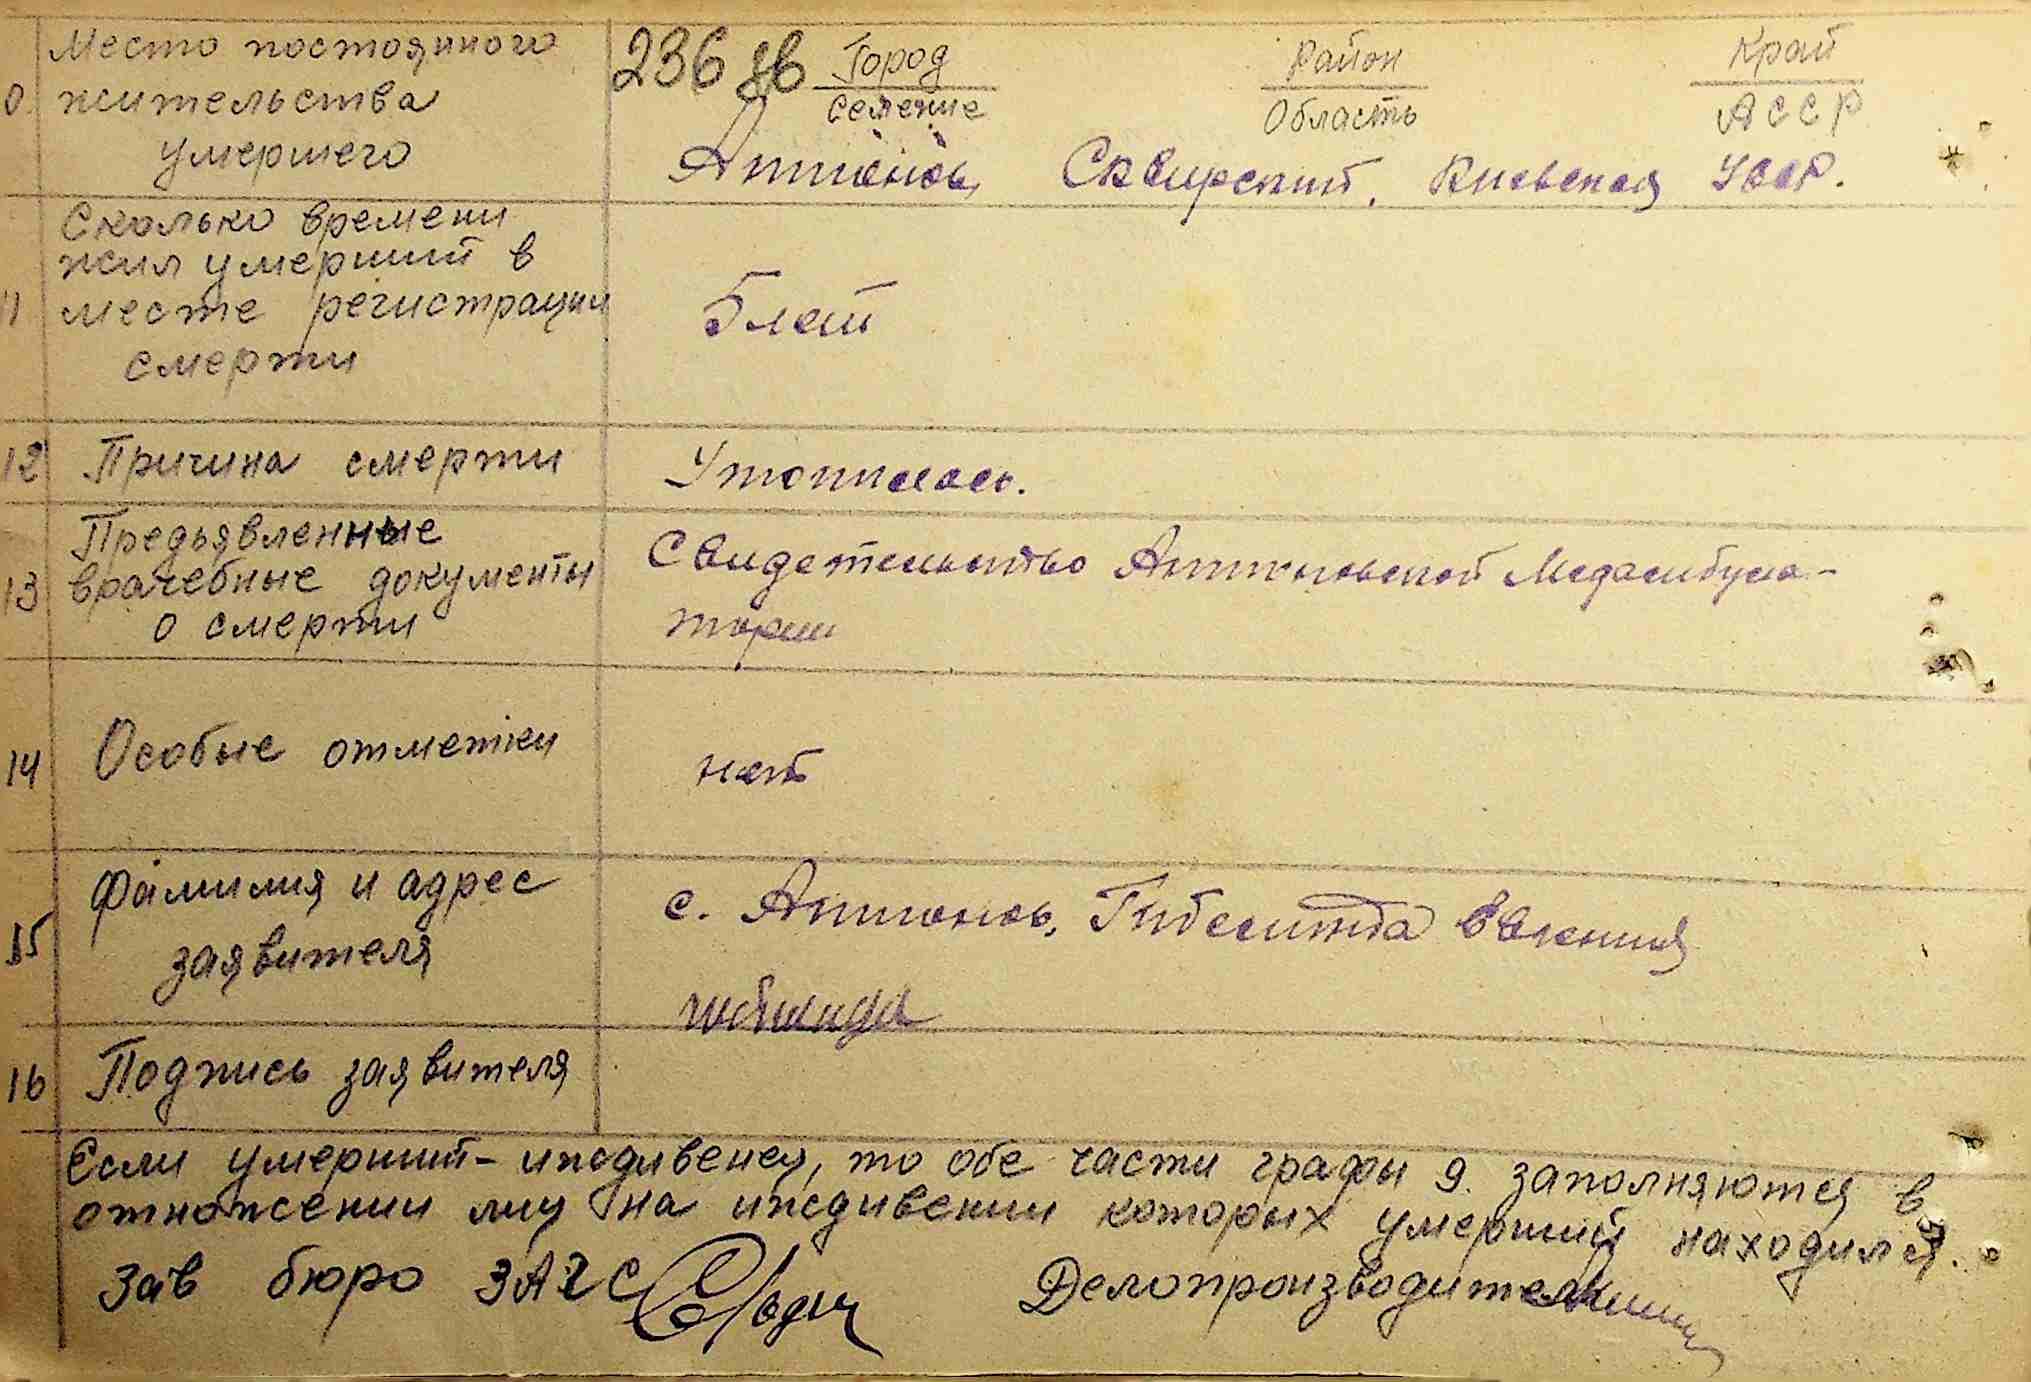 Место постоянного
0 жительства
умершего
236 зв Город Район Край
Селение Область АССР
Антонов, Сквирский, Киевская УССР.
Сколько времени
жил умерший в
11 месте регистрации
смерти
5 лет
12 Причина смерти
Утопилась.
Предъявленные
13 врачебные документы
о смерти
Свидетельство Антоновской Медамбула-
тории
14 Особые отметки
нет
Фамилия и адрес
15 заявителя
с. Антонов, Евгения
16 Подпись заявителя
Если умерший - иждивенец, то обе части графы 9. заполняются в
отношении лиц на иждивении которых умерший находился.
Зав бюро ЗАГС Делопроизводитель